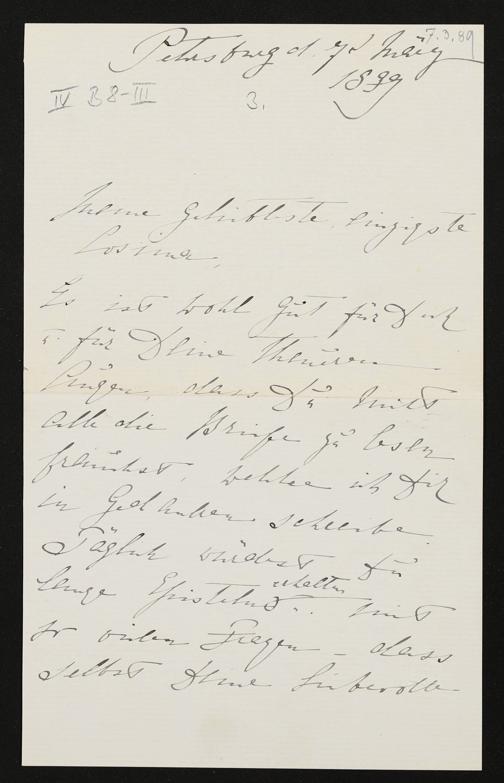 7.3.89
Petersburg d. 7t März
1889
IV B 8-III
3.
Meine geliebteste, einzigste
Cosima,
Es ist wohl gut für Dich
u. für Deine theueren
Augen, dass Du nicht
alle die Briefe zu lesen
brauchst, welche ich Dir
in Gedanken schreibe.
Täglich würdest Du
erhalten
lange Episteln u. mit
so vielen Fragen – dass
selbst Deine liebevolle